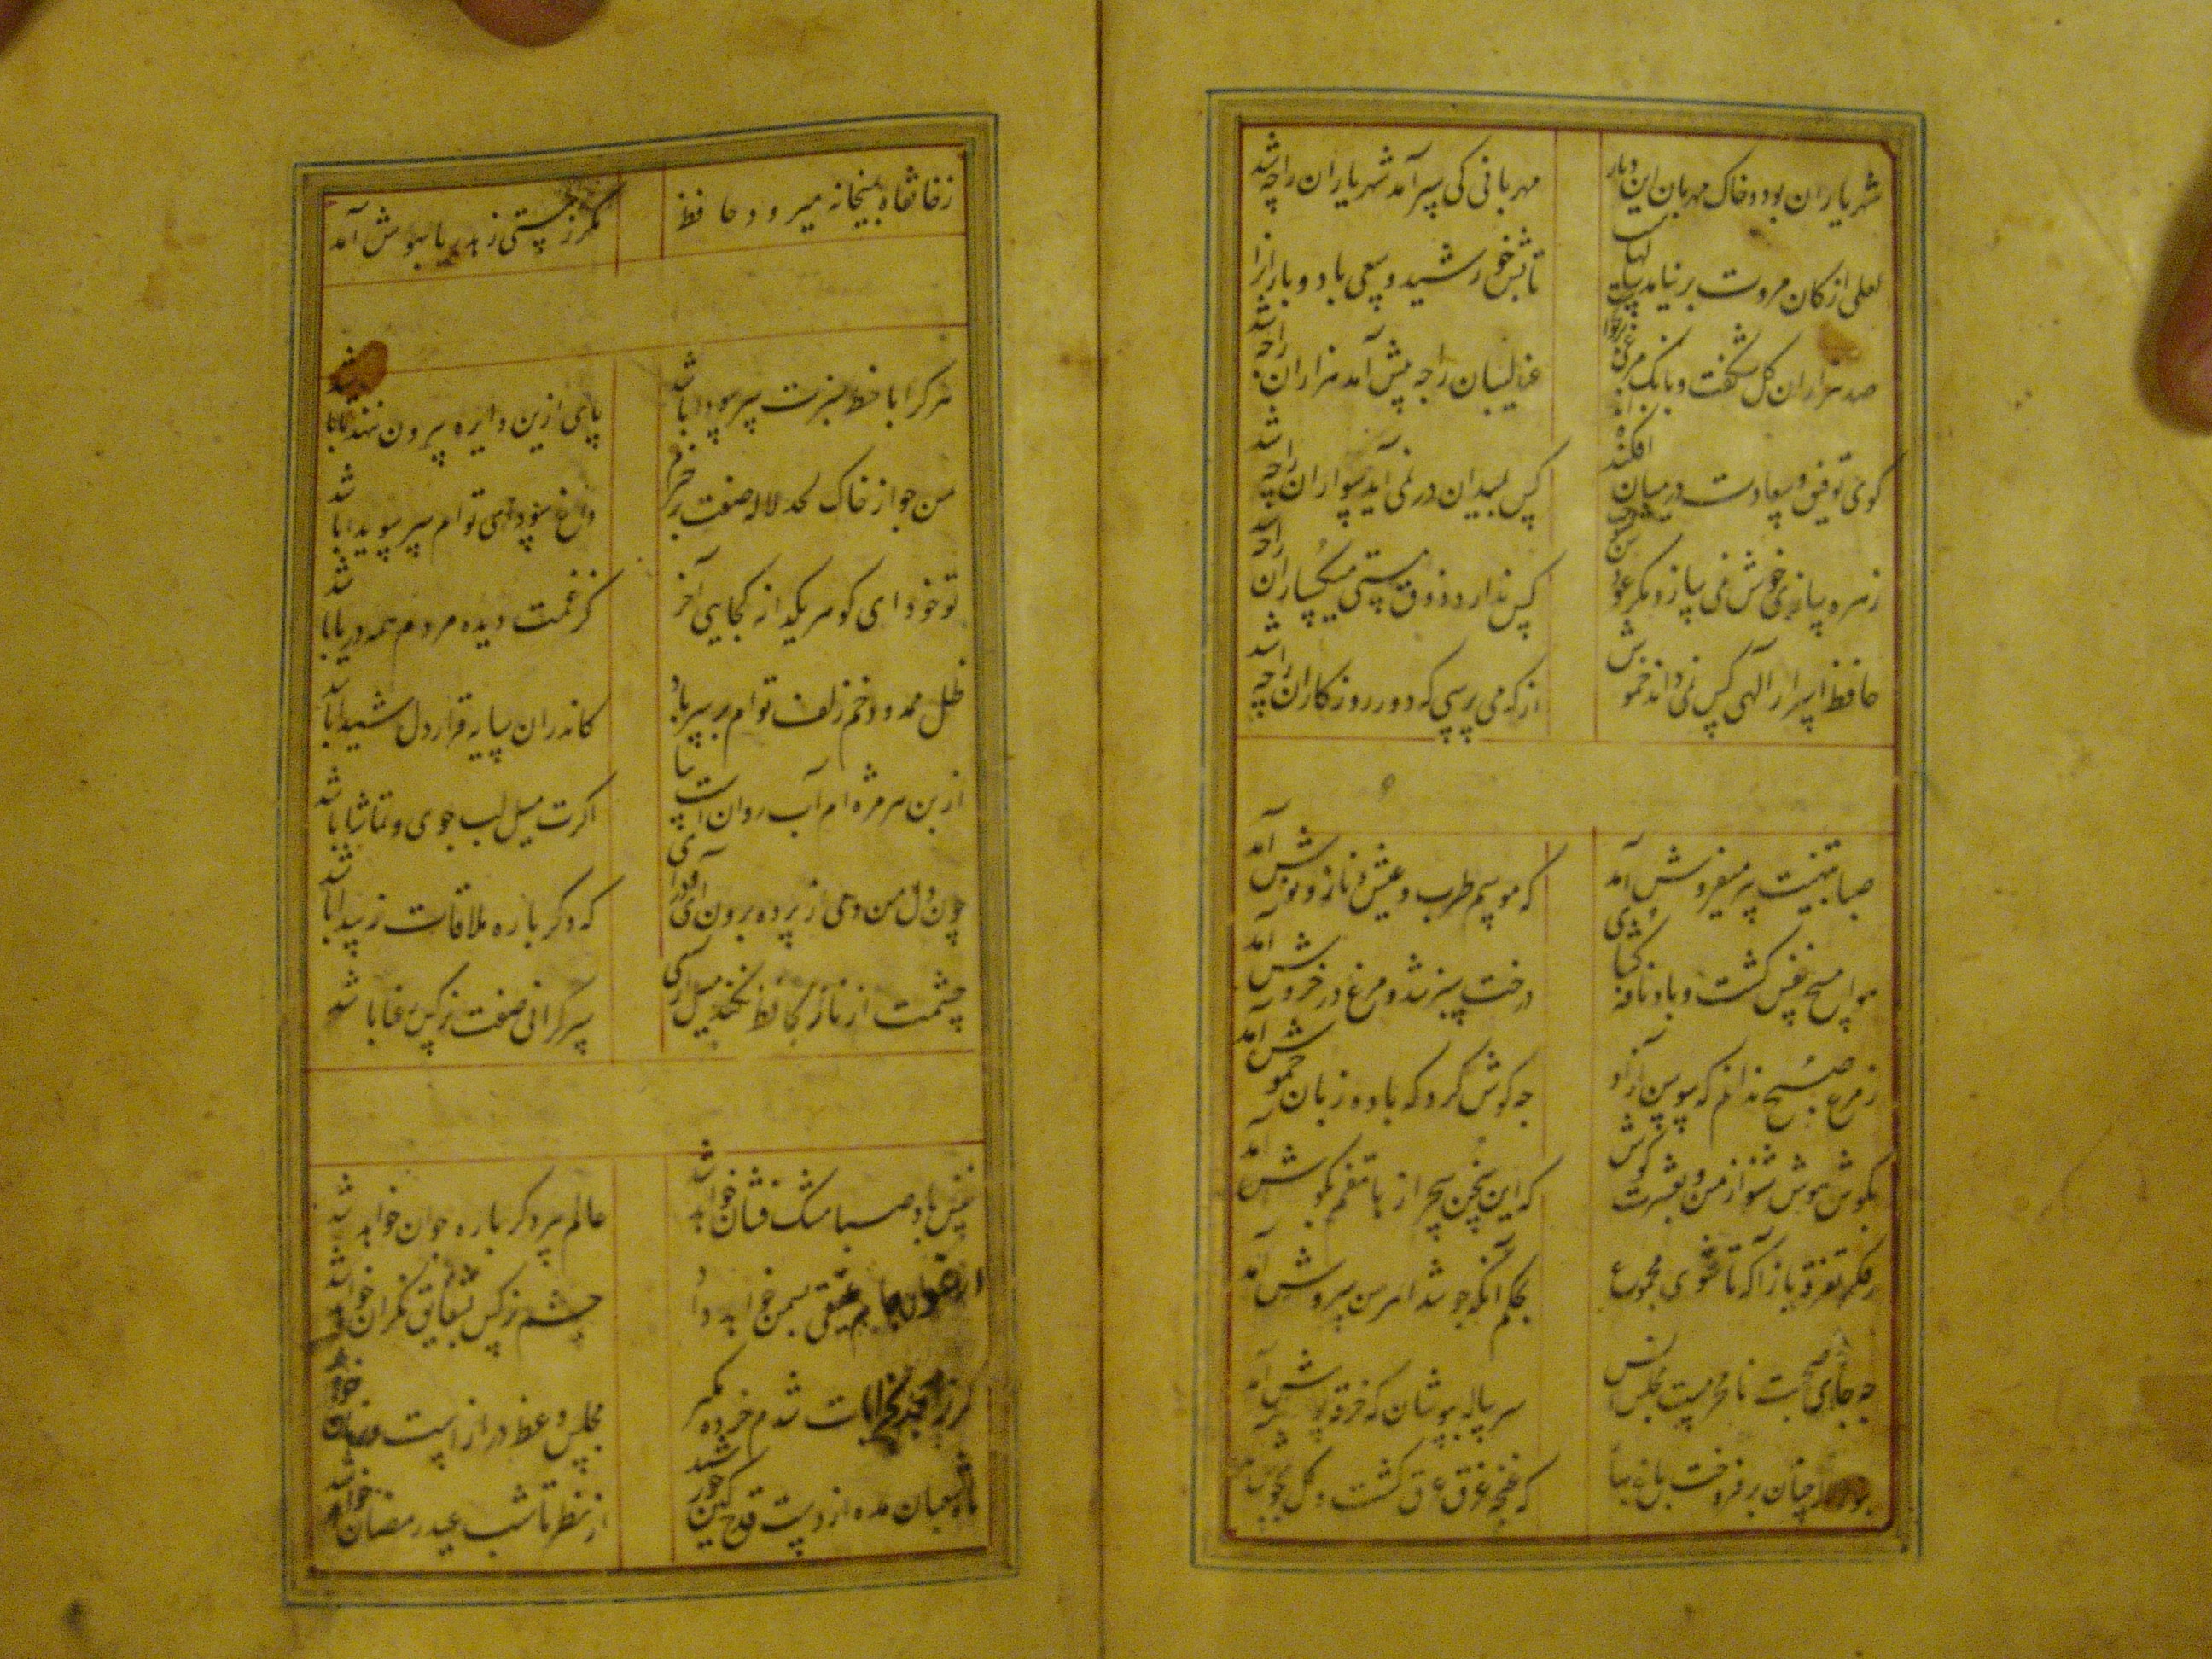 شهریاران بود و خاک مهربان این دیار
مهربانی کی سر آمد شهریاران را چه شد
لعلی از کان مروت برنیامد سالهاست
تابش خورشید و سعی باد و باران را چه شد
صد هزاران کل شکفت و بانک مرغی برنخواست
عندلیبان را چه پیش آمد هزاران را چه شد
کوی توفیق و سعادت در میان افکنده اند
کس بمیدان در نمی آید سواران را چه شد
زهره سازی خوش نمی سازد مکر عودش بسوخت
کس ندارد ذوق مستی میکساران را چه شد
حافظ اسرار الهی کس نمی داند خموش
از که می پرسی که دور روزکاران را چه شد
صبا بتهنیت پیر میفروش آمد
که موسم طرب و عیش و ناز و نوش آمد
هوا مسیح نفس کشت و باد نافه کشای
درخت سبز شد و مرغ در خروش آمد
ز مرغ صبح ندانم که سوسن آزاد
جه کوش کرد که با ده زبان خموش آمد
بکوش هوش شنو از من و بعشرت کوش
که این سخن سحر از هاتفم بکوش آمد
ز فکر تفرقه باز آ که تا شوی مجموع
بحکم آنکه جو شد اهرمن سروش آمد
جه جای صحبت نامحرمست مجلس انس
سر پیاله بپوشان که خرقه پوش آمد
چنان برفروخت باد بهار
که غنچه غرق عرق کشت و کل بجوش آمد
ز خانقاه بمیخانه میرود حافظ
مکر ز مستی زهد ریا بهوش آمد
هر کرا با خط سبزت سر سودا باشد
پای ازین دایره بیرون ننهد تا باشد
من جو از خاک لحد لاله صفت برخیزم
داغ سودای توام سر سویدا باشد
تو خود ای کوهر یکدانه کجایی آخر
کز غمت دیده مردم همه دریا باشد
ظل ممدود خم زلف توام بر سر باد
کاندران سایه قرار دل شیدا باشد
از بن هر مژه ام آب روانست بیا
اکرت میل لب جوی و تماشا باشد
چون دل من دمی از پرده برون آی و درآی
که دکر باره ملاقات نه پیدا باشد
چشمت از ناز بحافظ نکند میل آری
سرکرانی صفت نرکس رعنا باشد
نفس باد صبا مشک فشان خواهد شد
عالم پیر دکر باره جوان خواهد شد
ارغوان جام عقیقی بسمن خواهد داد
چشم نرکس بشقایق نکران خواهد شد
کر ز مسجد بخرابات شدم خرده مکیر
مجلس وعظ درازست و زمان خواهد شد
ماه شعبان مده از دست قدح کین خورشید
از نظر تا شب عید رمضان خواهد شد